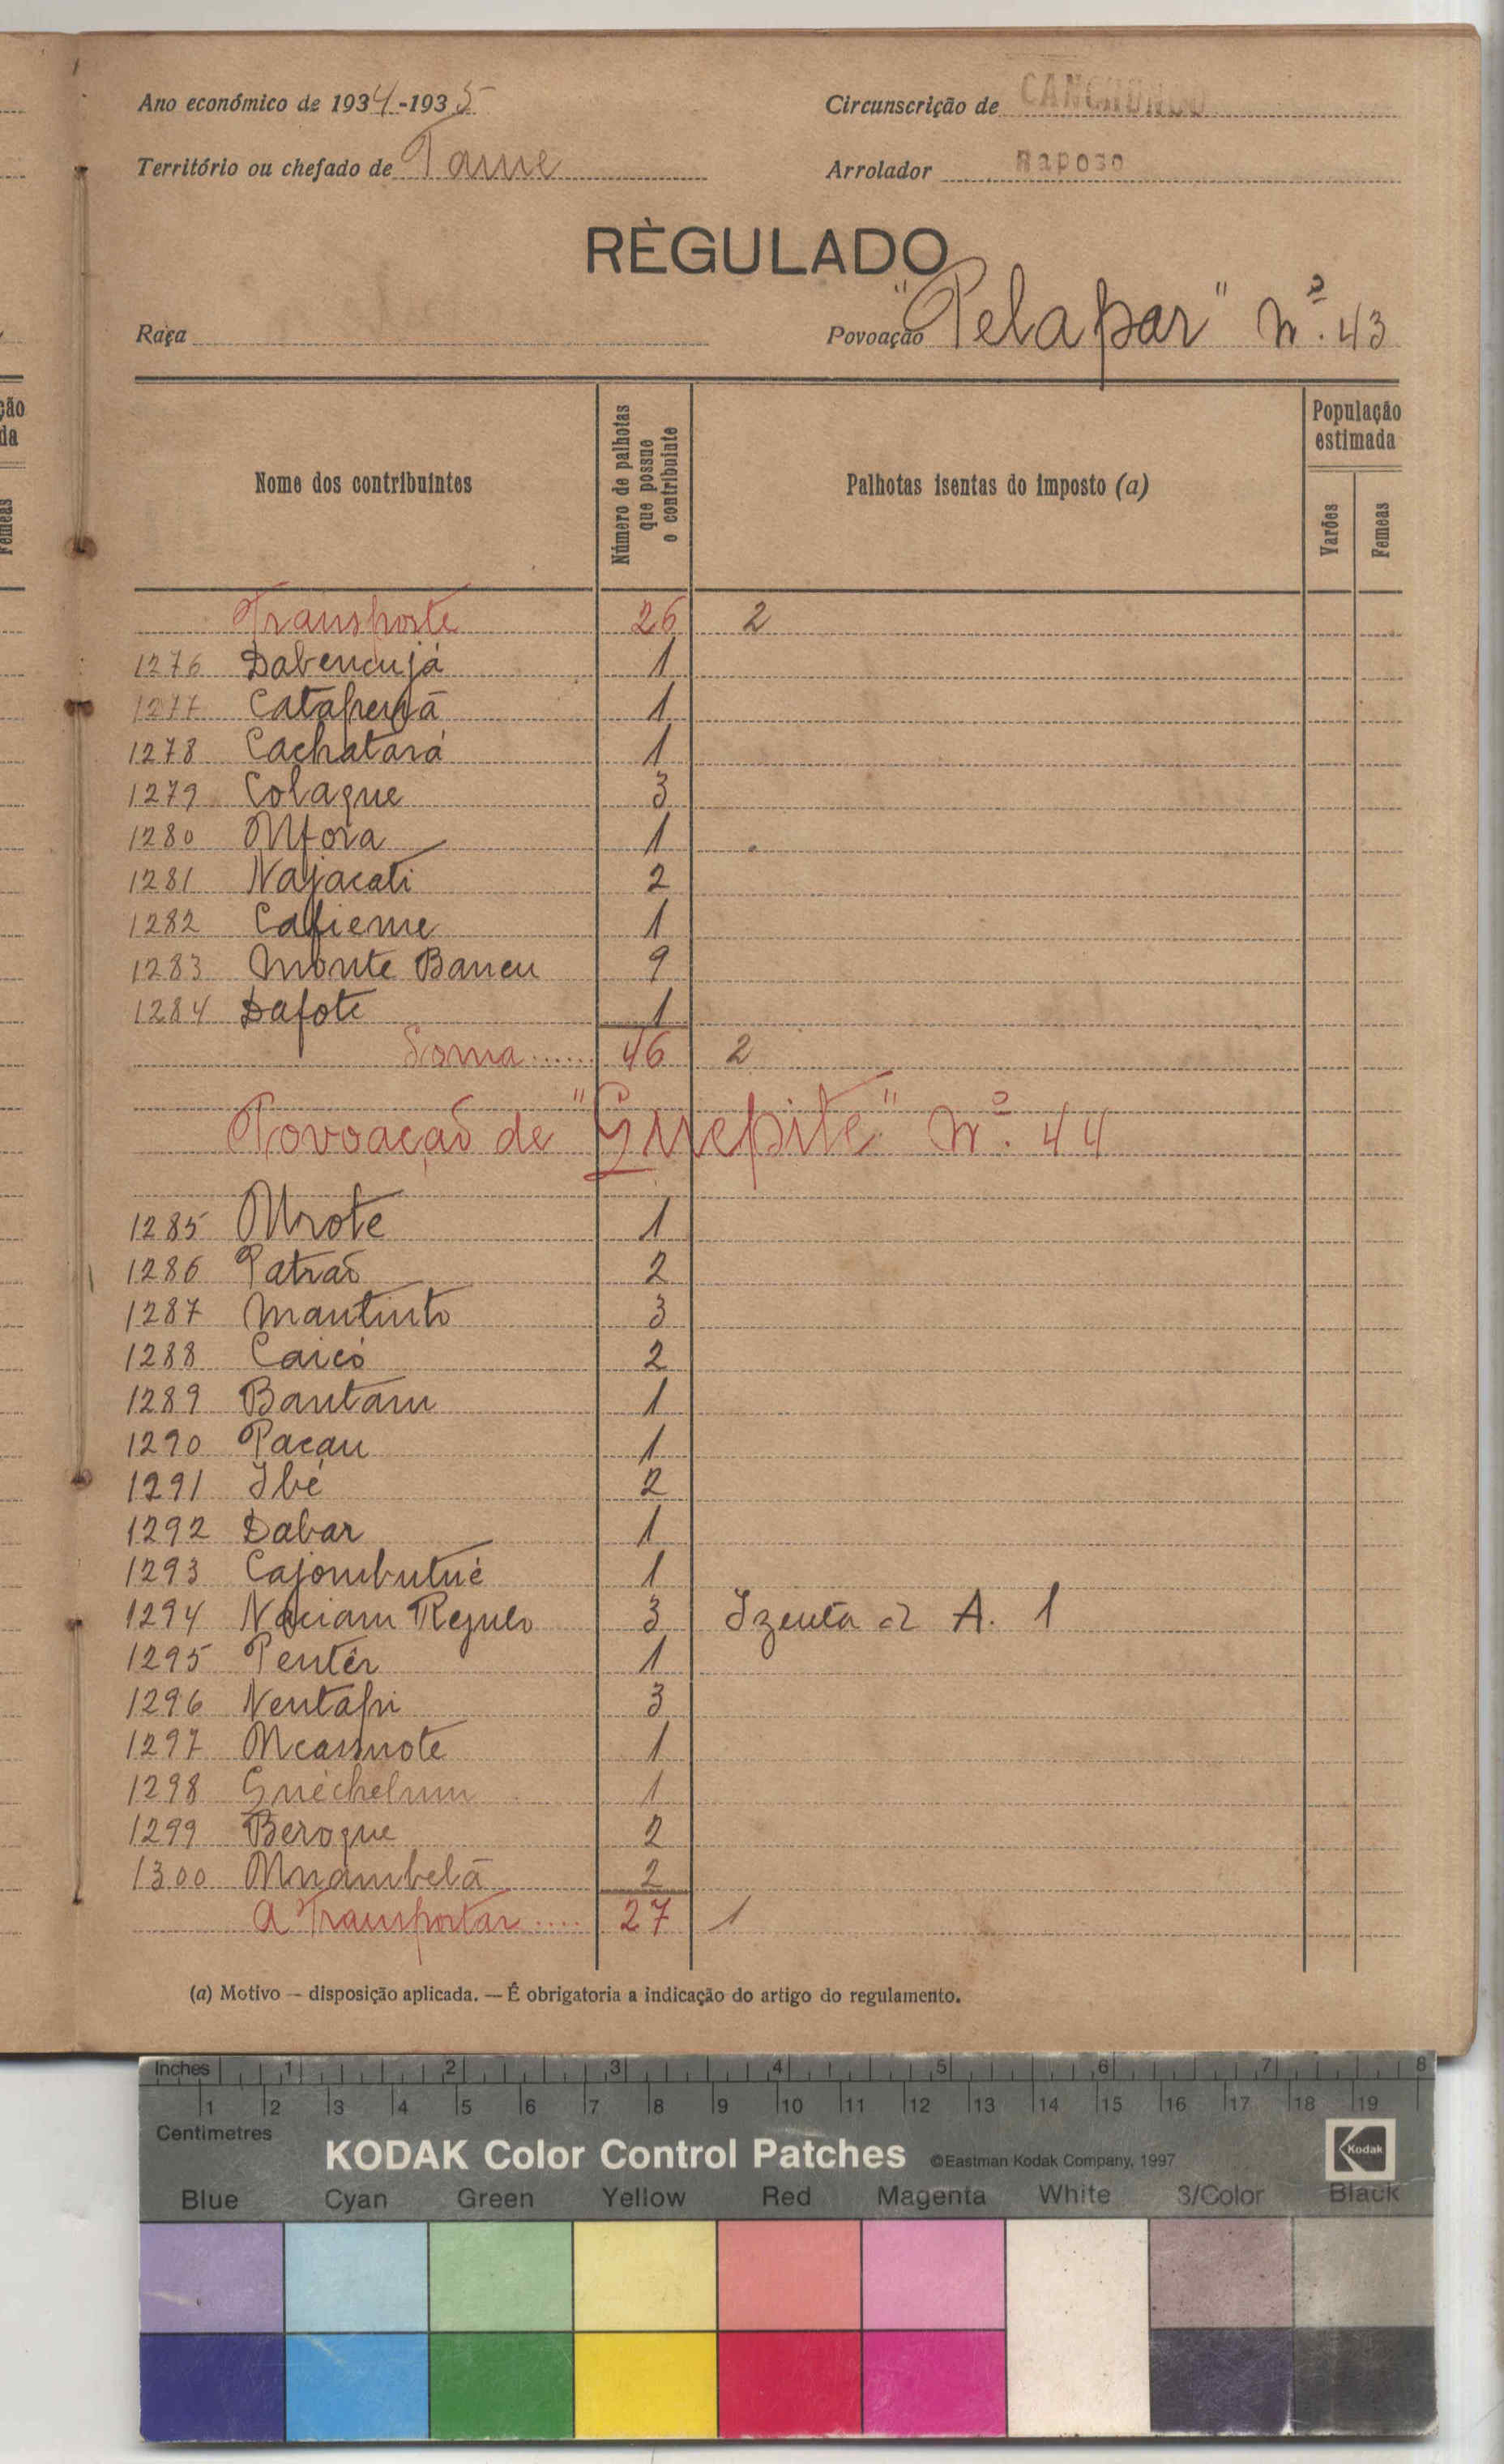 Ano económico de 1934-1935
Circunscrição de CANCHUNGO
Território ou chefado de Tame
Arrolador Raposo
RÈGULADO
Raça
Povoação "Pelapar" nº. 43
Nome dos contribuintes
Número de palhotas que possue o contribuinte
Palhotas isentas do imposto (a)
População estimada
Varões
Femeas
Transporte 26 2
1276 Dabencujá 1
1277 1
1278 Cachatará 1
1279 Colaque 3
1280 Mfora 1
1281 Najacati 2
1282 Cafieme 1
1283 Monte Baneu 9
1284 Dafote 1
Soma...... 46 2
Povoação de "Guepite" nº. 44
1285 Mrote 1
1286 Patraõ 2
1287 Mantinto 3
1288 Caicó 2
1289 Bantam 1
1290 Pacau 1
1291 Ibé 2
1292 Dabar 1
1293 Cajombutué 1
1294 Naciam Regulo 3 Izenta A. 1
1295 Pentêr 1
1296 Nentapi 3
1297 1
1298 Guéchelum 1
1299 Beroque 2
1300 Muambelã 2
A Transportar.... 27 1
(a) Motivo — disposição aplicada. — É obrigatoria a indicação do artigo do regulamento.
ção
da
Femeas
Inches 1 2 3 4 5 6 7 8
1 2 3 4 5 6 7 8 9 10 11 12 13 14 15 16 17 18 19
Centimetres
KODAK Color Control Patches ©Eastman Kodak Company, 1997 Kodak
Blue Cyan Green Yellow Red Magenta White 3/Color Black